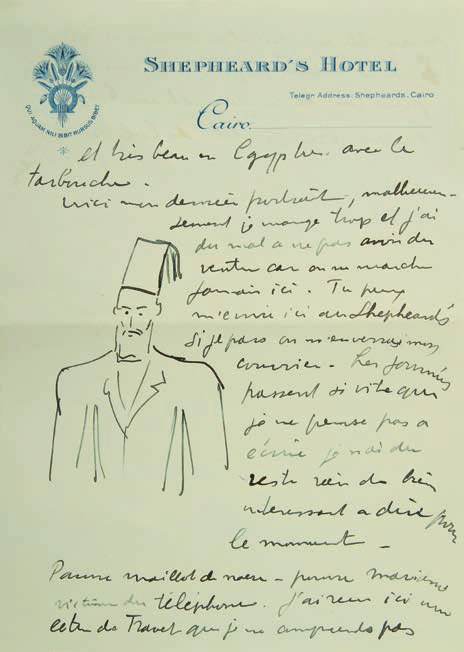 SHEPHEARD'S HOTEL
Telegr. Address: Shepheards, Cairo
QUI AQUAM NILI BIBIT RURSUS BIBET
Cairo
et très beau en Egypte avec le
tarbouche.
Voici mon dernier portrait, malheureu-
sement je mange trop et j'ai
du mal a ne pas avoir du
ventre car on ne marche
jamais ici. Tu peux
m'écrire ici au Shepheard's
si je pars on m'enverra mon
courrier. Les journées
passent si vite que
je ne pense pas a
écrire je n'ai du
reste rien de bien
interessant a dire pour
le moment -
Pauvre maillot de - pauvre
victime du téléphone. J'ai reçu ici une
lettre de Travel que je ne comprends pas